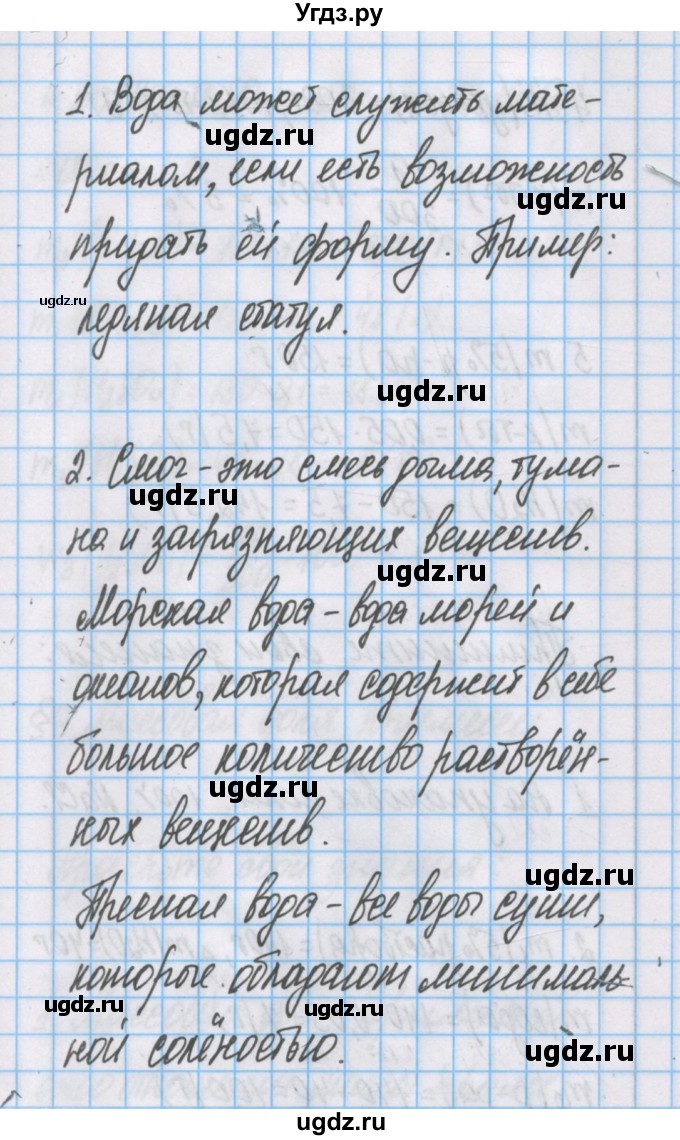 Угдз.ру
1. Вода может служить мате-
риалом, если есть возможность
придать ей форму. Пример:
ледяная статуя.
2. Смог - это смесь дыма, тума-
на и загрязняющих веществ.
Морская вода - вода морей и
океанов, которая содержит в себе
большое количество растворён-
ных веществ.
Пресная вода - все воды суши,
которые обладают минималь-
ной солёностью.
ugdz.ru
ugdz.ru
ugdz.ru
ugdz.ru
ugdz.ru
ugdz.ru
ugdz.ru
ugdz.ru
ugdz.ru
ugdz.ru
ugdz.ru
ugdz.ru